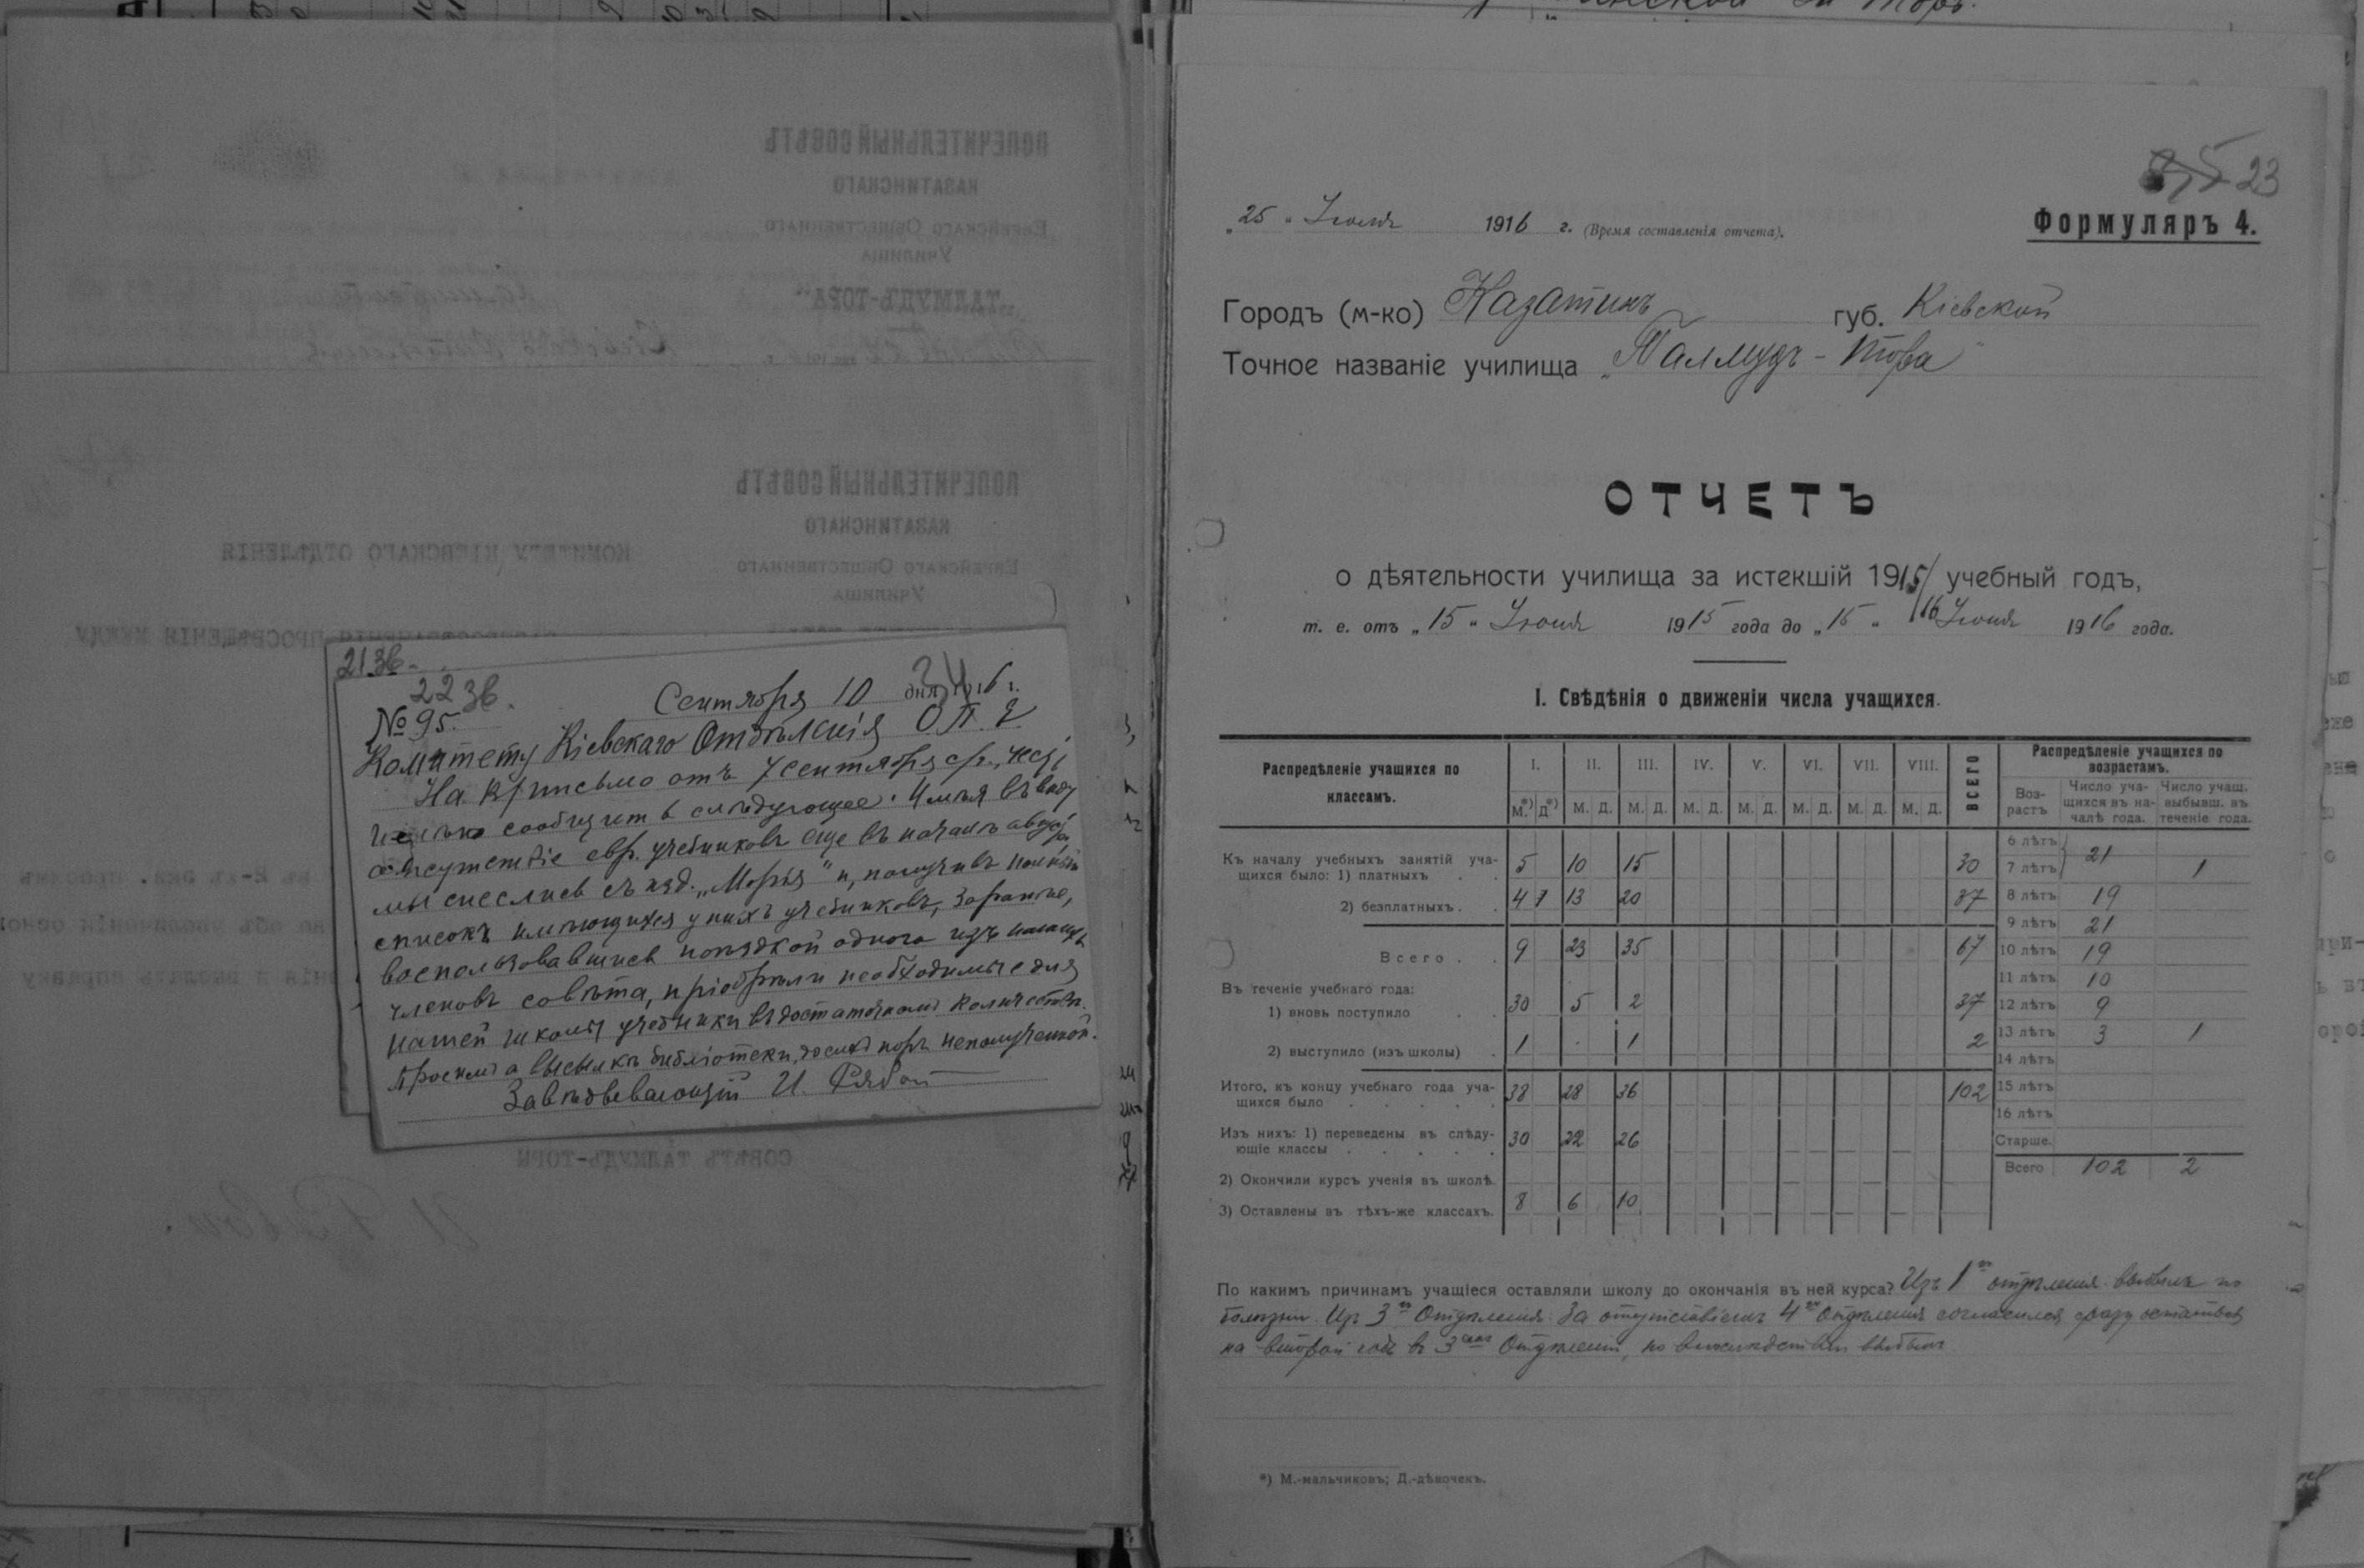 2136.
2236.
34
№ 95.
Сентября 10 дня 1916 г.
Комитету Кіевскаго Отдѣленія О.П.Е.
На В/ письмо отъ 7 сентября с/г., честь
имѣю сообщить слѣдующее. Имѣя въ виду
отсутствіе евр. учебниковъ еще въ началѣ августа
мы снеслись съ изд. „Морія" и, получивъ полный
списокъ имѣющихся у нихъ учебниковъ, заранѣе,
воспользовавшись поѣздкой одного изъ нашихъ
членовъ совѣта, пріобрѣли необходимые для
нашей школы учебники въ достаточномъ количествѣ.
Просимъ о высылкѣ библіотеки, до сихъ поръ неполученной.
Завѣдывающій И. Рябой
ПОПЕЧИТЕЛЬНЫЙ СОВѢТЪ
КАЗАТИНСКАГО
ЕВРЕЙСКАГО ОБЩЕСТВЕННАГО
УЧИЛИЩА
„ТАЛМУДЪ-ТОРА"
ПОПЕЧИТЕЛЬНЫЙ СОВѢТЪ
КАЗАТИНСКАГО
ЕВРЕЙСКАГО ОБЩЕСТВЕННАГО
УЧИЛИЩА
КОМИТЕТУ КІЕВСКАГО ОТДѢЛЕНІЯ
ПРОСВѢЩЕНІЯ МЕЖДУ
СОВѢТЪ ТАЛМУДЪ-ТОРЫ
23
Формуляръ 4.
„25" Іюля 1916 г. (Время составленія отчета).
Городъ (м-ко) Казатинъ губ. Кіевской
Точное названіе училища „Талмудъ-Тора"
ОТЧЕТЪ
о дѣятельности училища за истекшій 1915/16 учебный годъ,
т. е. отъ „15" Іюня 1915 года до „15" Іюня 1916 года.
I. Свѣдѣнія о движеніи числа учащихся.
Распредѣленіе учащихся по классамъ. I. II. III. IV. V. VI. VII. VIII. ВСЕГО
М.*) Д.*) М. Д. М. Д. М. Д. М. Д. М. Д. М. Д. М. Д.
Къ началу учебныхъ занятій уча-
щихся было: 1) платныхъ 5 10 15 30
2) безплатныхъ 4 13 20 37
Всего 9 23 35 67
Въ теченіе учебнаго года:
1) вновь поступило 30 5 2 37
2) выступило (изъ школы) 1 . 1 2
Итого, къ концу учебнаго года уча-
щихся было 38 28 36 102
Изъ нихъ: 1) переведены въ слѣду-
ющіе классы 30 22 26
2) Окончили курсъ ученія въ школѣ
3) Оставлены въ тѣхъ-же классахъ. 8 6 10
Распредѣленіе учащихся по
возрастамъ.
Воз-растъ Число уча-щихся въ на-чалѣ года. Число учащ. выбывш. въ теченіе года.
6 лѣтъ
7 лѣтъ 21 1
8 лѣтъ 19
9 лѣтъ 21
10 лѣтъ 19
11 лѣтъ 10
12 лѣтъ 9
13 лѣтъ 3 1
14 лѣтъ
15 лѣтъ
16 лѣтъ
Старше.
Всего 102 2
По какимъ причинамъ учащіеся оставляли школу до окончанія въ ней курса? Изъ 1го отдѣленія выбылъ по
болѣзни. Изъ 3го Отдѣленія: За отсутствіемъ 4го Отдѣленія согласился сразу остаться
на второй годъ въ 3емъ Отдѣленіи, но впослѣдствіи выбылъ
*) М.-мальчиковъ; Д.-дѣвочекъ.